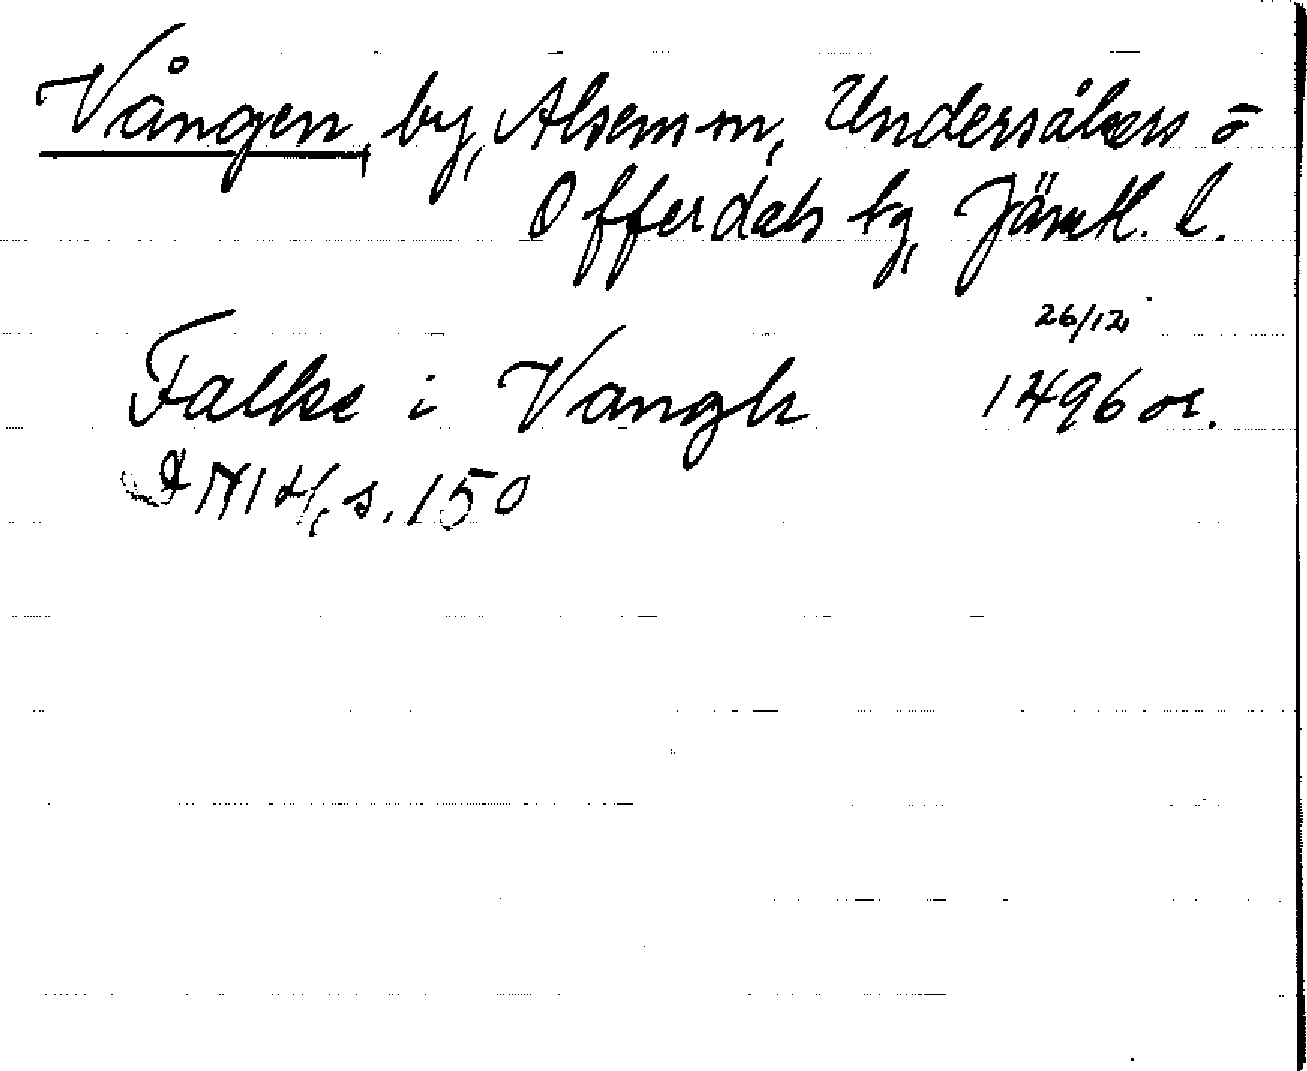 Vången, by, Alsens sn, Undersåkers o
Offerdals tg, Jämtl. l.
26/12
Falke i Vangh 1496 or.
DN 14, s. 150